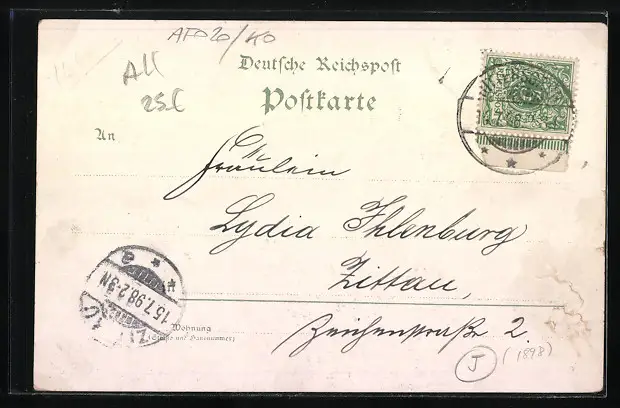 AFO20/KO
All
25.C
Deutsche Reichspost
Postkarte
An
Fräulein
Lydia Ihlenburg
Zittau,
15.7.98.2-3N
Wohnung
(Straße und Hausnummer)
Zeichenstraße 2.
J (1898)